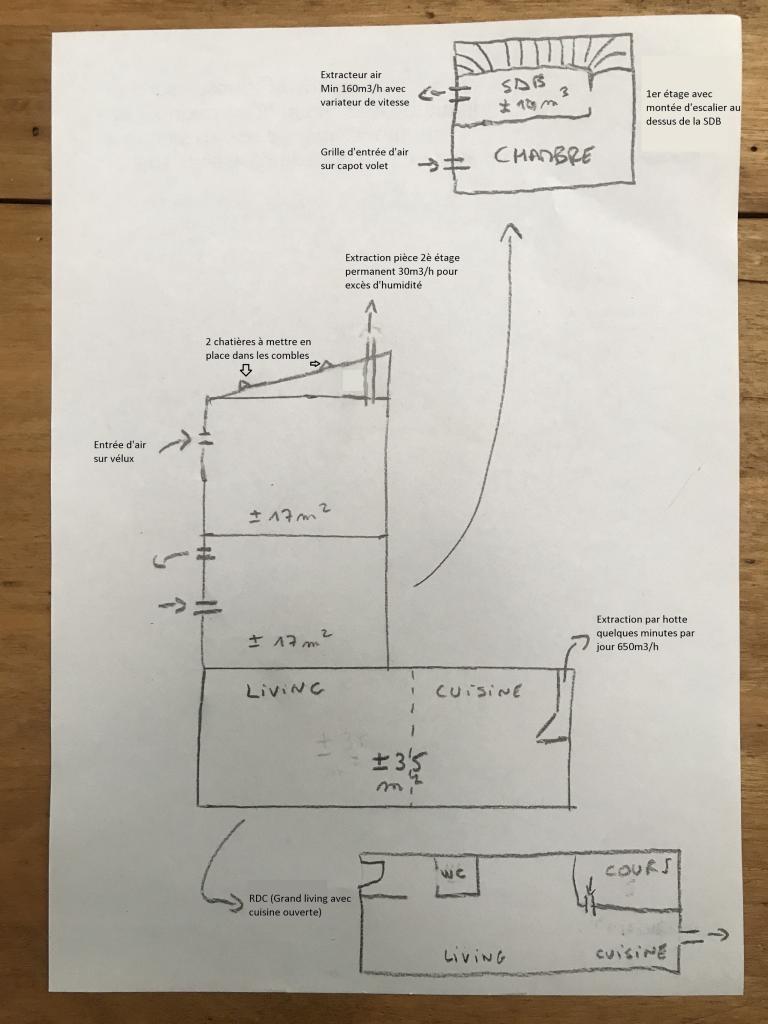 Extracteur air
Min 160m3/h avec
variateur de vitesse
SDB
± m³
1er étage avec
montée d'escalier au
dessus de la SDB
Grille d'entrée d'air
sur capot volet
CHAMBRE
Extraction pièce 2è étage
permanent 30m3/h pour
excès d'humidité
2 chatières à mettre en
place dans les combles
Entrée d'air
sur vélux
± 17 m²
± 17 m²
Extraction par hotte
quelques minutes par
jour 650m3/h
LIVING
CUISINE
± 35
m²
RDC (Grand living avec
cuisine ouverte)
WC
COURS
LIVING
CUISINE